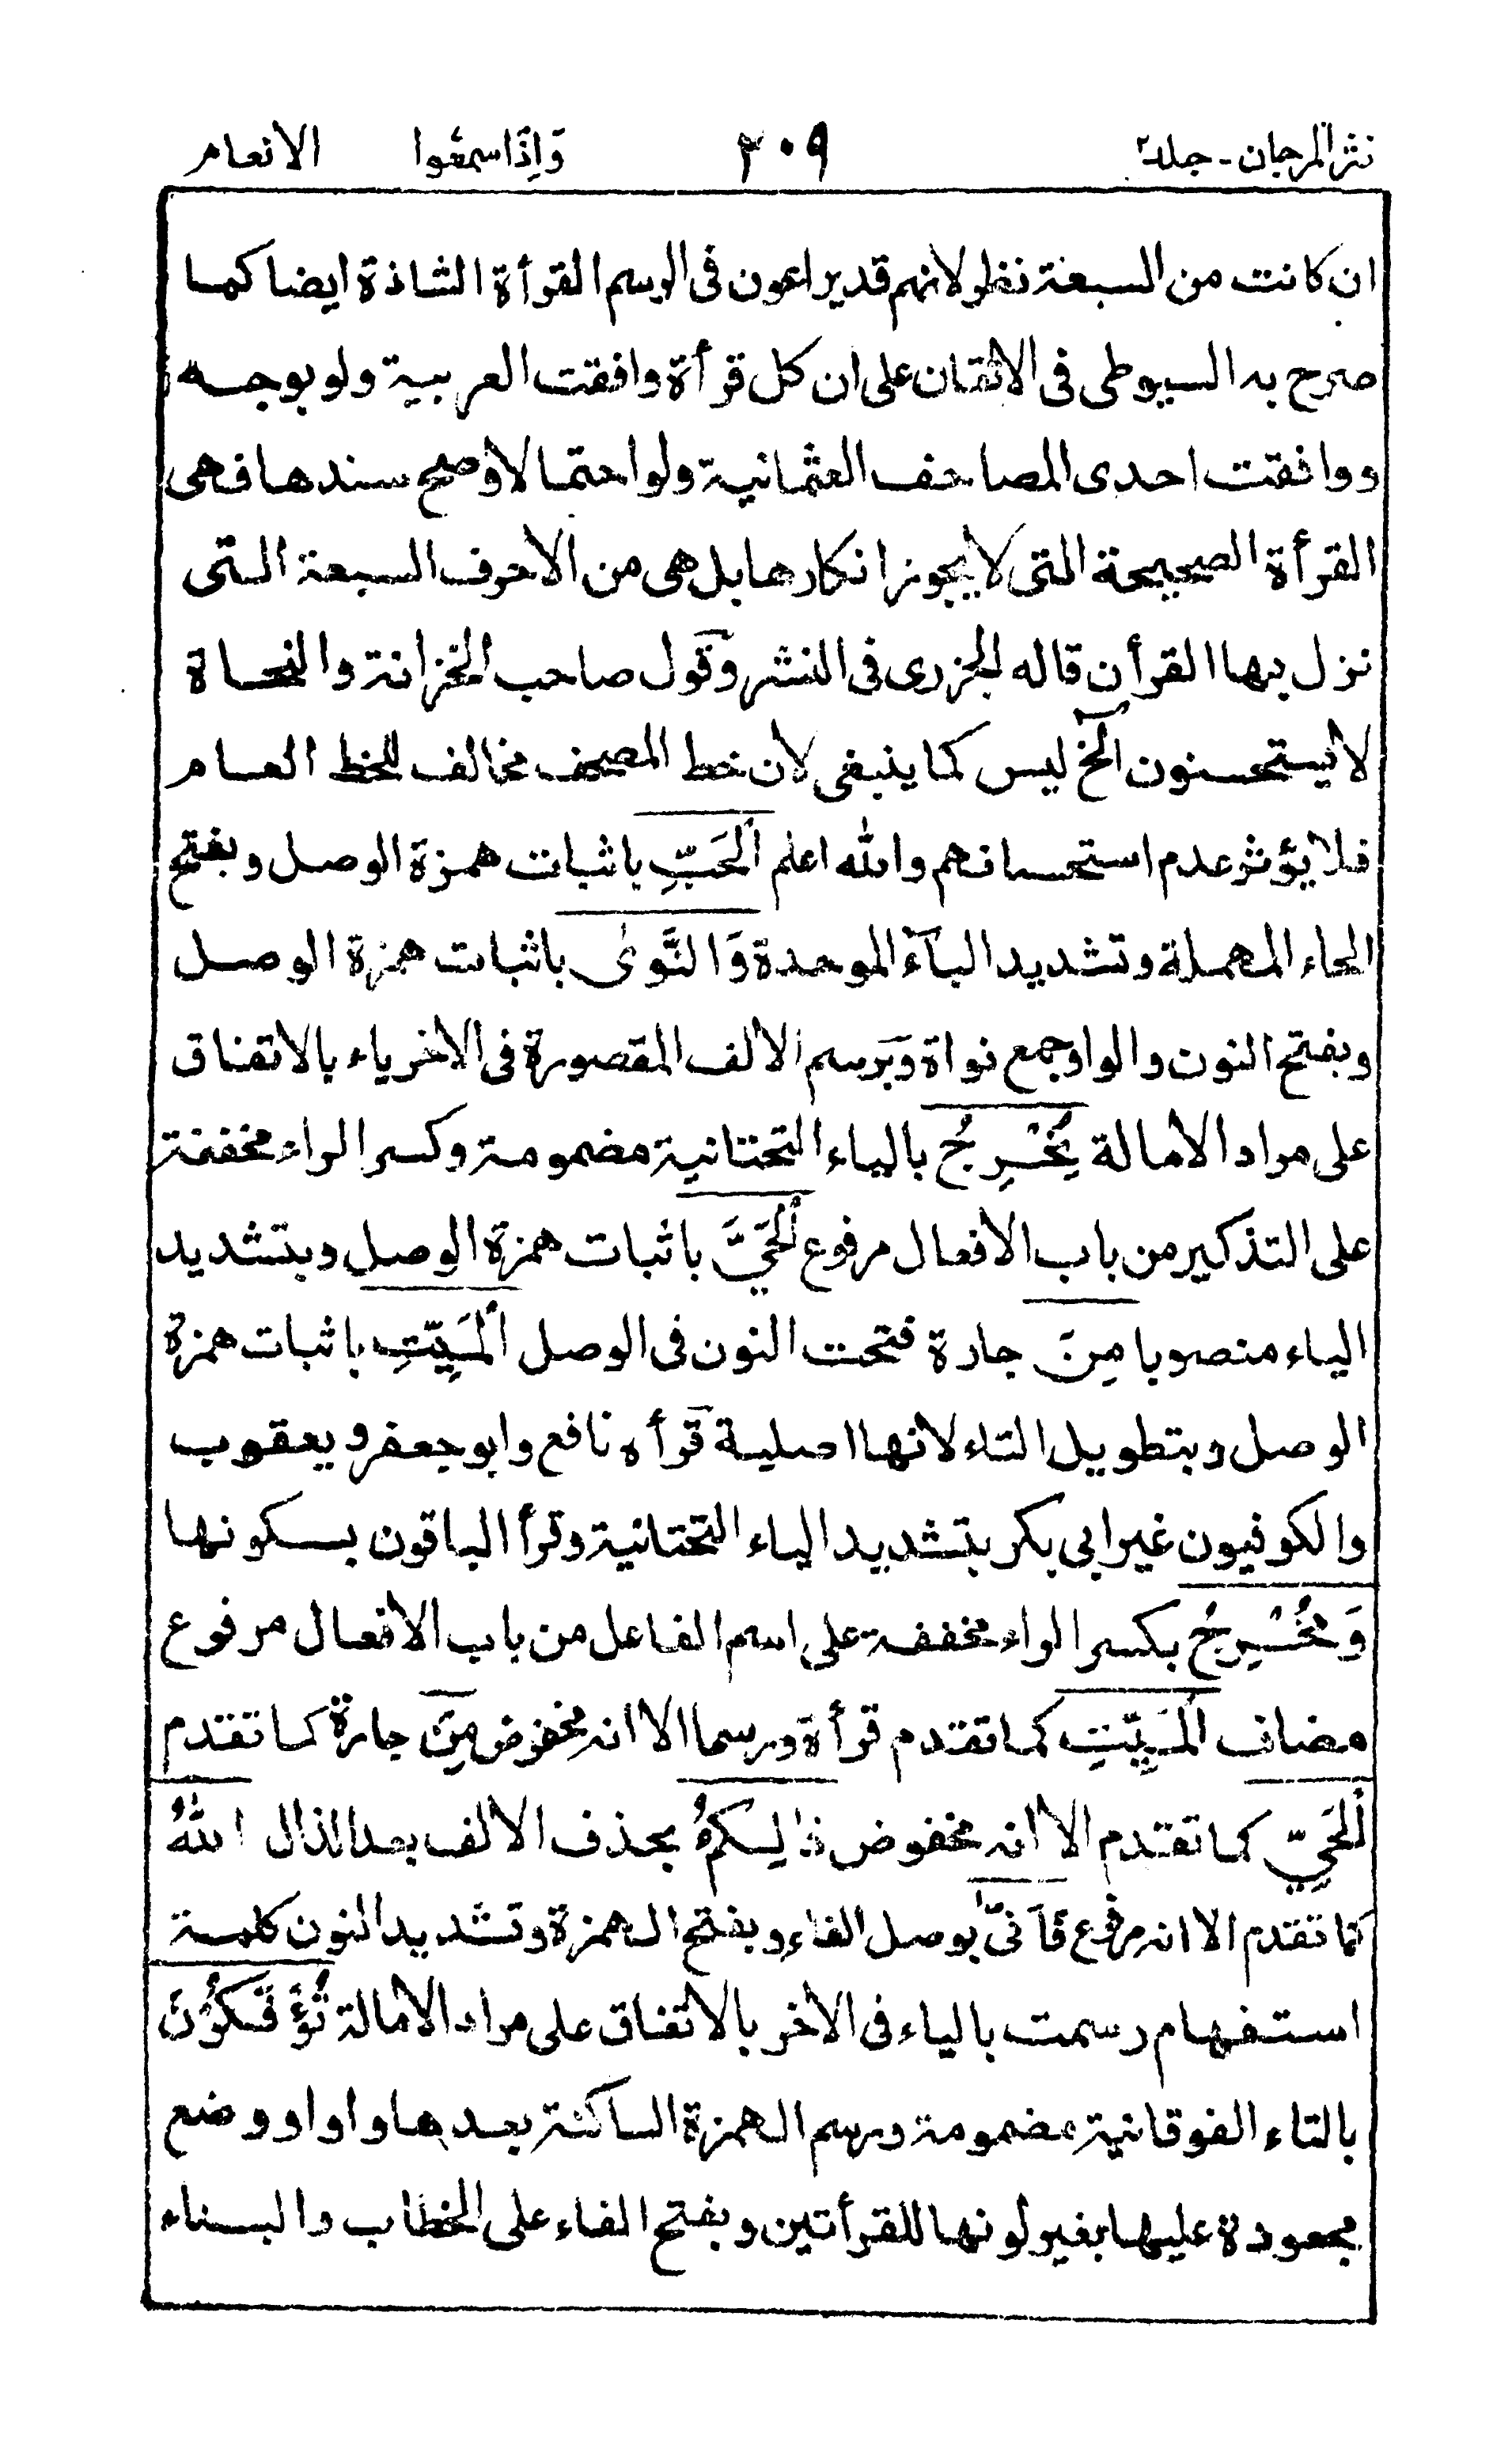 نثر المرجان - جلد ٢ ٢٠٩ وَاِذَا سمعُوا الانعام
ان كانت من السبعة نظر لانهم قد يراعون فى الرسم القرأة الشاذة ايضا كما
صرح به السيوطى فى الاتقان على ان كل قرأة وافقت العربية ولو بوجه
ووافقت احدى المصاحف العثمانية ولو احتمالا وصح سندها فهى
القرأة الصحيحة التى لا يجوز انكارها بل هى من الاحرف السبعة التى
نزل بها القرأن قاله الجزرى فى النشر وقول صاحب الخزانة والنحاة
لا يستحسنون الخ ليس كما ينبغى لان خط المصحف مخالف للخط العام
فلا يؤثر عدم استحسانهم والله اعلم اَلحَبِّ باثبات همزة الوصل وبفتح
الحاء المهملة وتشديد البآء الموحدة وَالنَّوٰى باثبات همزة الوصل
وبفتح النون والواو جمع نواة وبرسم الالف المقصورة فى الاخر ياء بالاتفاق
على مراد الامالة يُخْرِجُ بالياء التحتانية مضمومة وكسر الراء مخففة
على التذكير من باب الافعال مرفوع اَلحَيَّ باثبات همزة الوصل وبتشديد
الياء منصوبا مِنَ جارة فتحت النون فى الوصل اَلمَيِّتِ باثبات همزة
الوصل وبتطويل التاء لانها اصلية قرأه نافع وابو جعفر ويعقوب
والكوفيون غير ابى بكر بتشديد الياء التحتانية وقرأ الباقون بسكونها
وَمُخْرِجُ بكسر الراء مخففة على اسم الفاعل من باب الافعال مرفوع
مضاف المَيِّتِ كما تقدم قرأة ورسما الا انه مخفوض مِنَ جارة كما تقدم
اَلحَيِّ كما تقدم الا انه مخفوض ذٰلِكُمُ بحذف الالف بعد الذال اللهُ
كما تقدم الا انه مرفوع فَاَنّٰى بوصل الفاء وبفتح الهمزة وتشديد النون كلمة
استفهام رسمت بالياء فى الاخر بالاتفاق على مراد الامالة تُؤْفَكُوْنَ
بالتاء الفوقانية مضمومة ورسم الهمزة الساكنة بعدها واوا ووضع
مجعودة عليها بغير لونها للقرأتين وبفتح الفاء على الخطاب والبناء